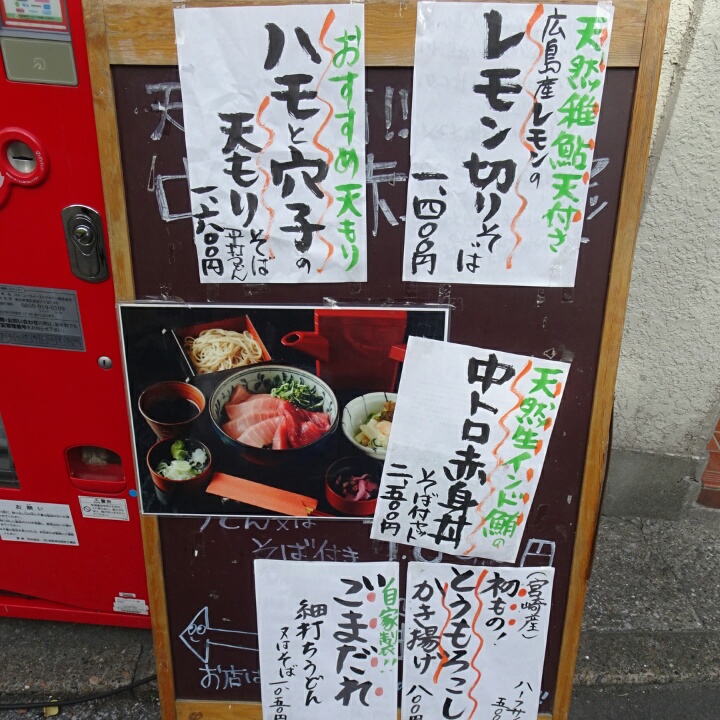 おすすめ天もり
ハモと穴子の
天もり
そば
平打うどん
一、六〇〇円
天然稚鮎天付き
広島産レモンの
レモン切りそば
一、四〇〇円
天然生インド鮪の
中トロ赤身丼
二、五〇〇円
そば付き
円
自家製!!
ごまだれ
細打ちうどん
又はそば
一、〇五〇円
(宮崎産)
初もの!
とうもろこし
かき揚げ
八〇〇円
ハーフサ
五〇
お店は
お願い